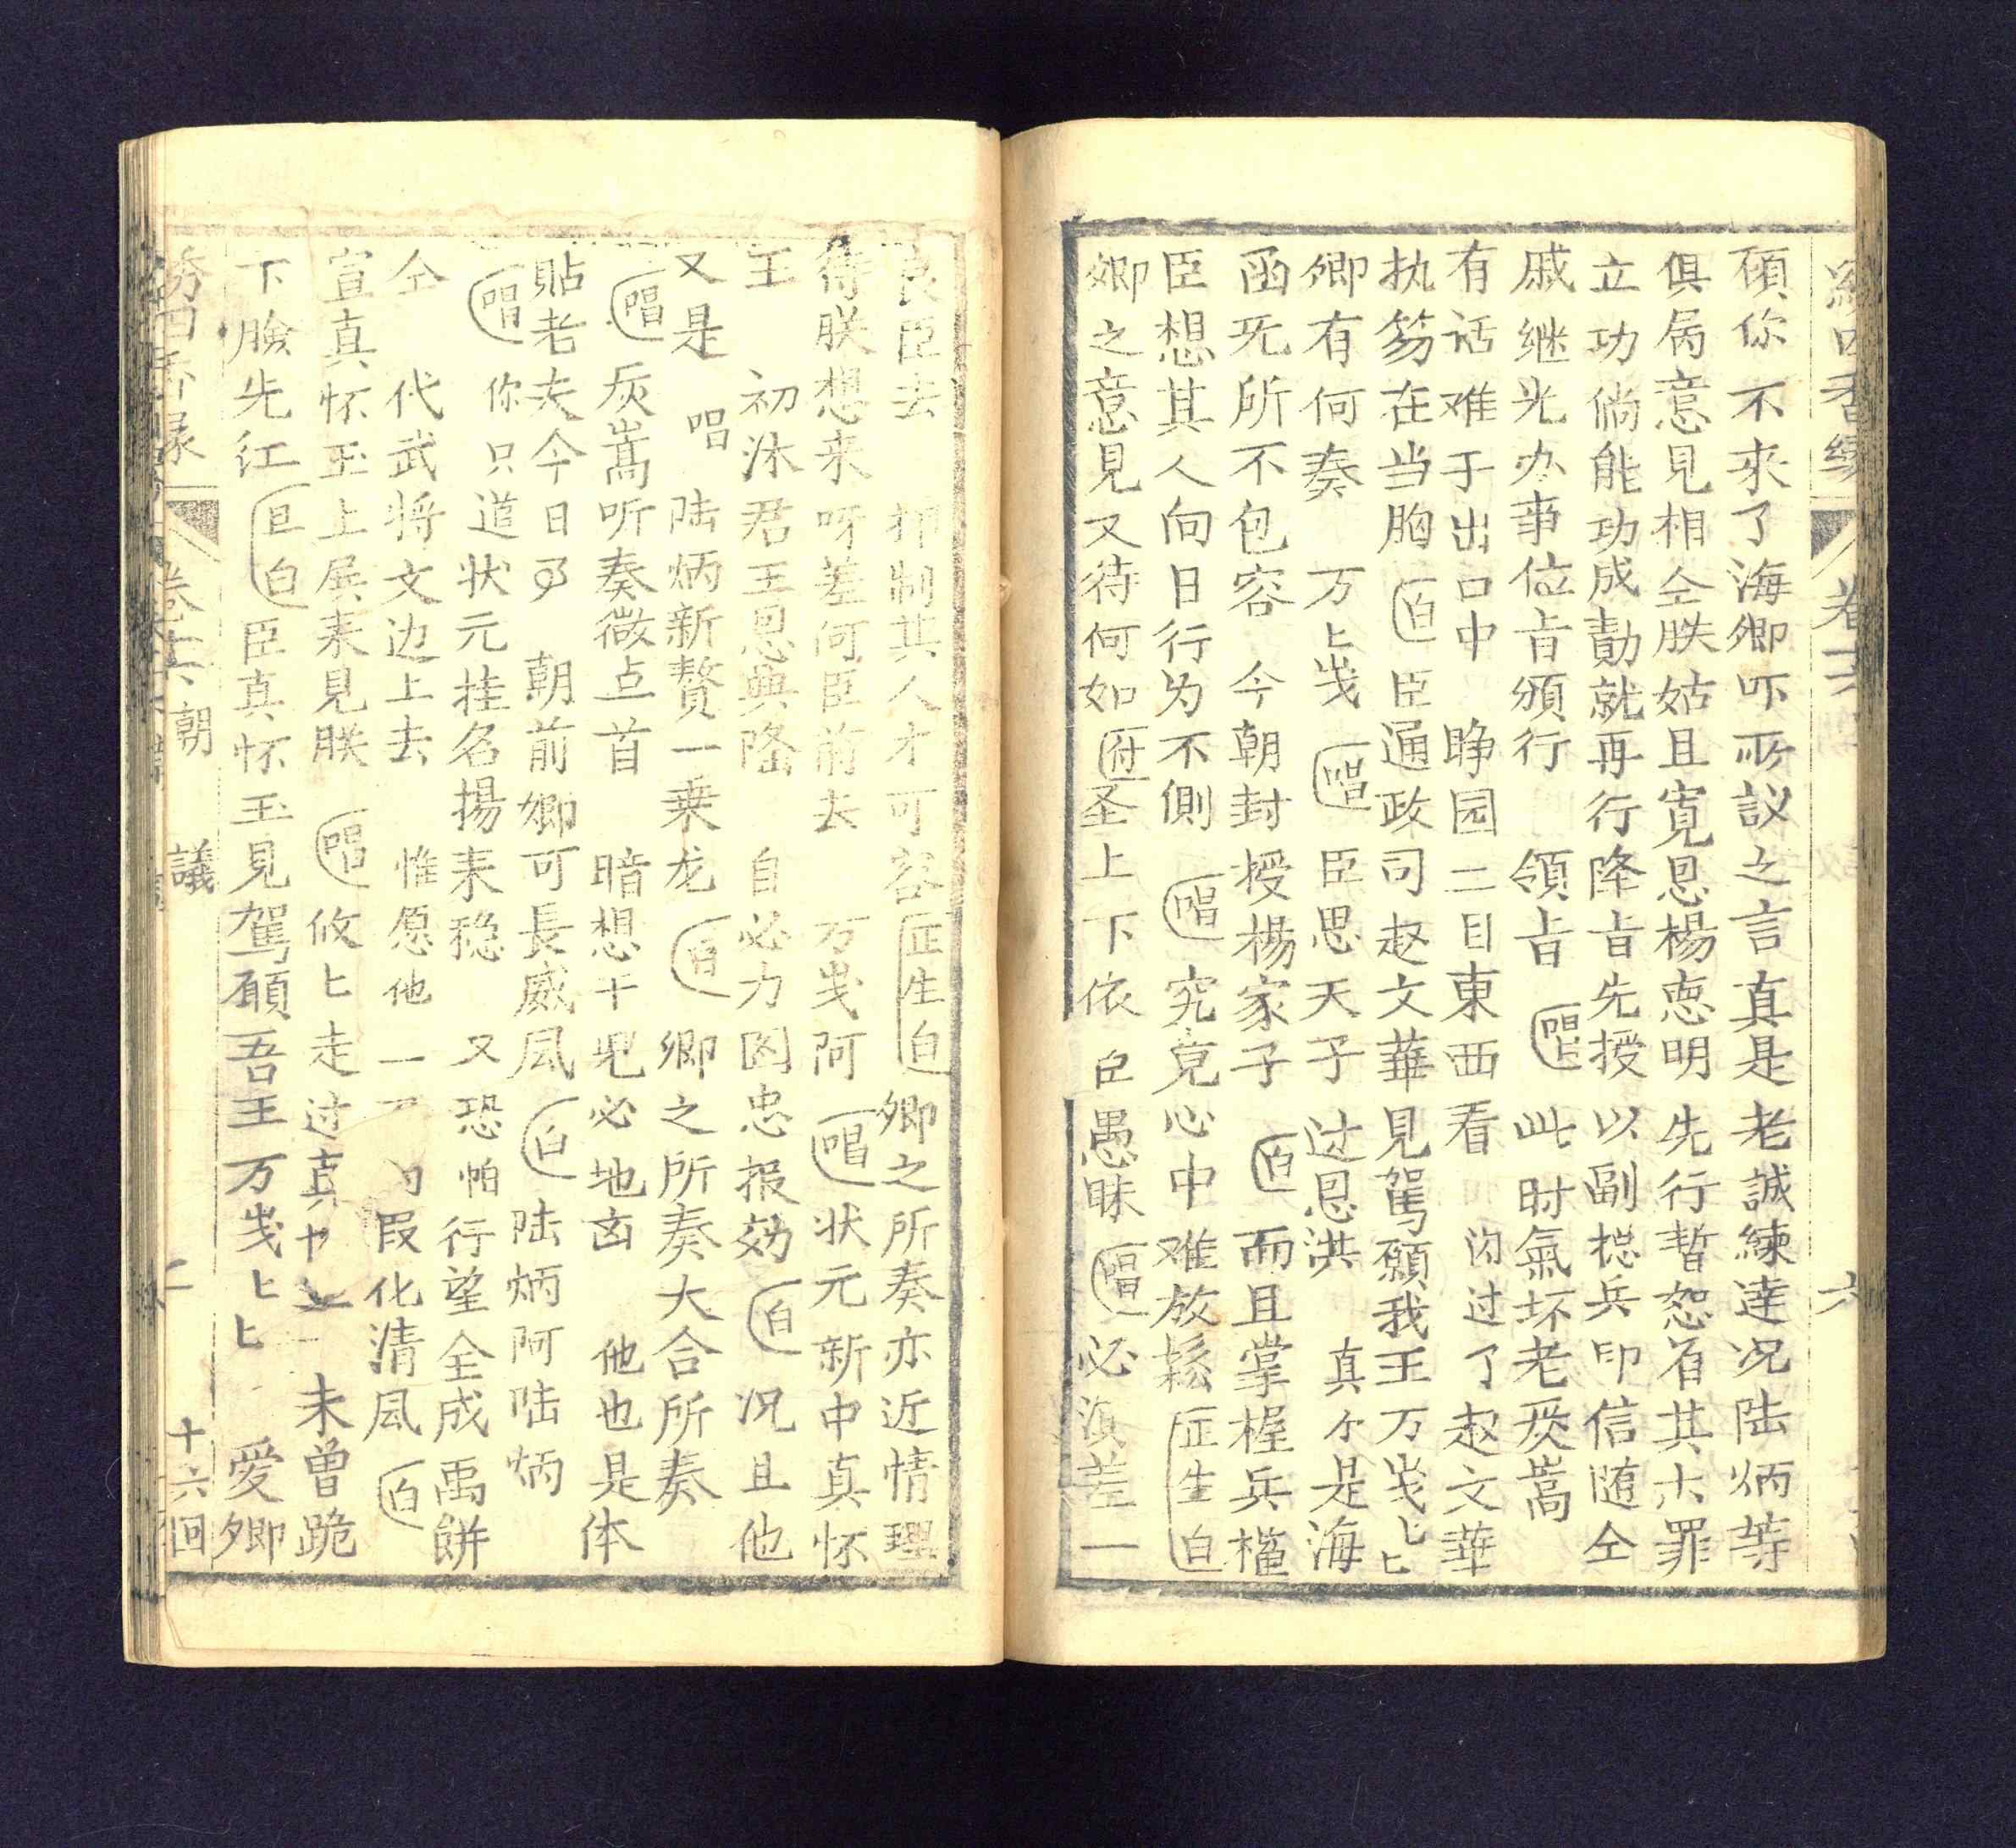 卷六
六
碩你不來了海卿吓所議之言真是老誠練達况陆炳等
俱属意見相仝朕姑且寛恩楊恴明先行暫恕省其大罪
立功倘能功成勣就再行降㫖先授以副揔兵印信随仝
戚继光办事位㫖頒行　領㫖　唱　此时氣坏老厌嵩
有话难于出口中　睁园二目東西看　闪过了赵文華
执笏在当胸　白　臣通政司赵文華見駕願我王万岁匕匕
卿有何奏　万匕岁　唱　臣思天子过恩洪　真个是海
函旡所不包容　今朝封授楊家子　白　而且掌握兵權
臣想其人向日行为不側　唱　究竟心中难放鬆　正生白
卿之意見又待何如　付　圣上下依臣愚昧　唱　必須差一
良臣去　抑制其人才可容　正生白　卿之所奏亦近情理
待朕想来呀差何臣前去　万岁阿　唱　状元新中真怀
王　初沐君王恩典隆　自必力图忠报効　白　况且他
又是　唱　陆炳新贅一乗龙　白　卿之所奏大合所奏
唱　厌嵩听奏微点首　暗想干児必地凶　他也是体
貼老夫今日　朝前卿可長威風　白　陆炳阿陆炳
唱　你只道状元挂名揚来稳　又恐怕行望全成禹餅
仝　代武将文边上去　惟愿他一　叚化清風　白
宣真怀玉上展来見朕　唱　攸匕走过真　未曾跪
下臉先红　旦白　臣真怀玉見駕願吾王万岁匕匕　愛卿
卷六　朝議　十六回